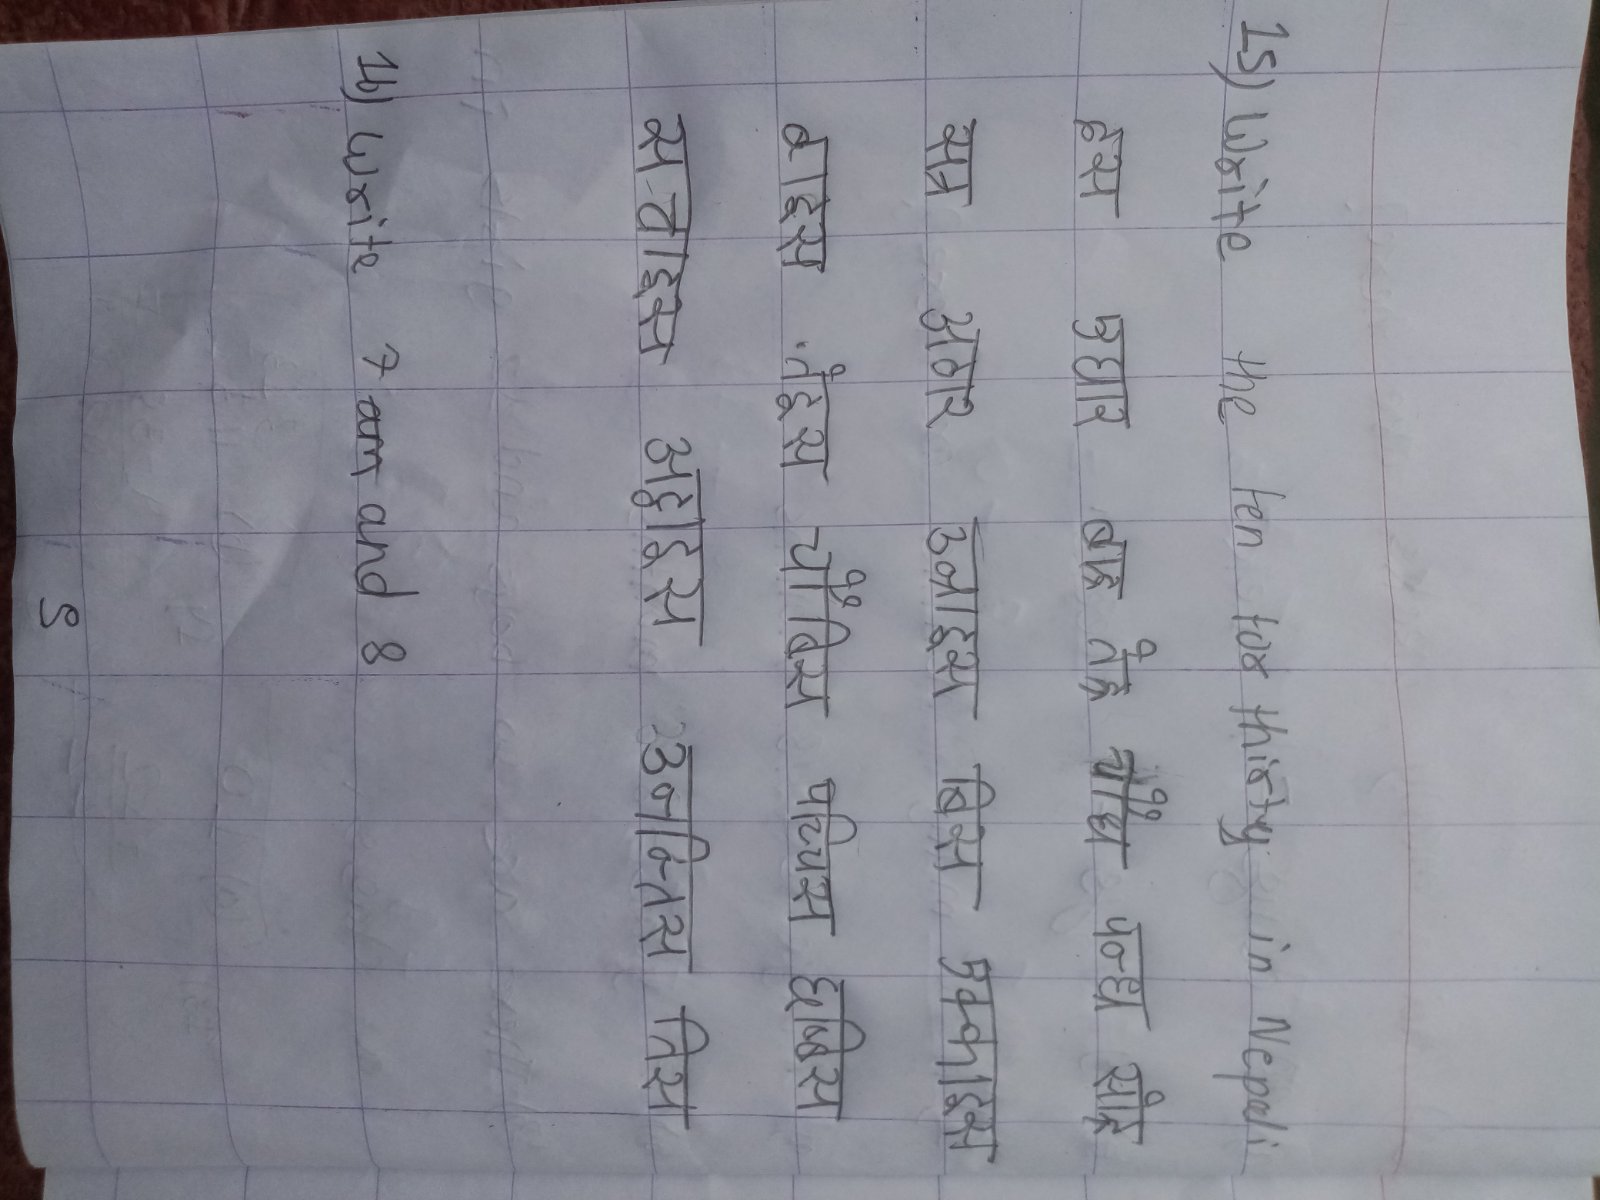 15) Write the ten tor thirty in Nepali
दस एघार बाह्र तेह्र चौध पन्ध्र सोह्र
सत्र अठार उन्नाइस बिस एक्काइस
बाइस तेइस चौबिस पच्चिस छब्बिस
सत्ताइस अट्ठाइस उनन्तिस तिस
16) Write 7 am and 8
S